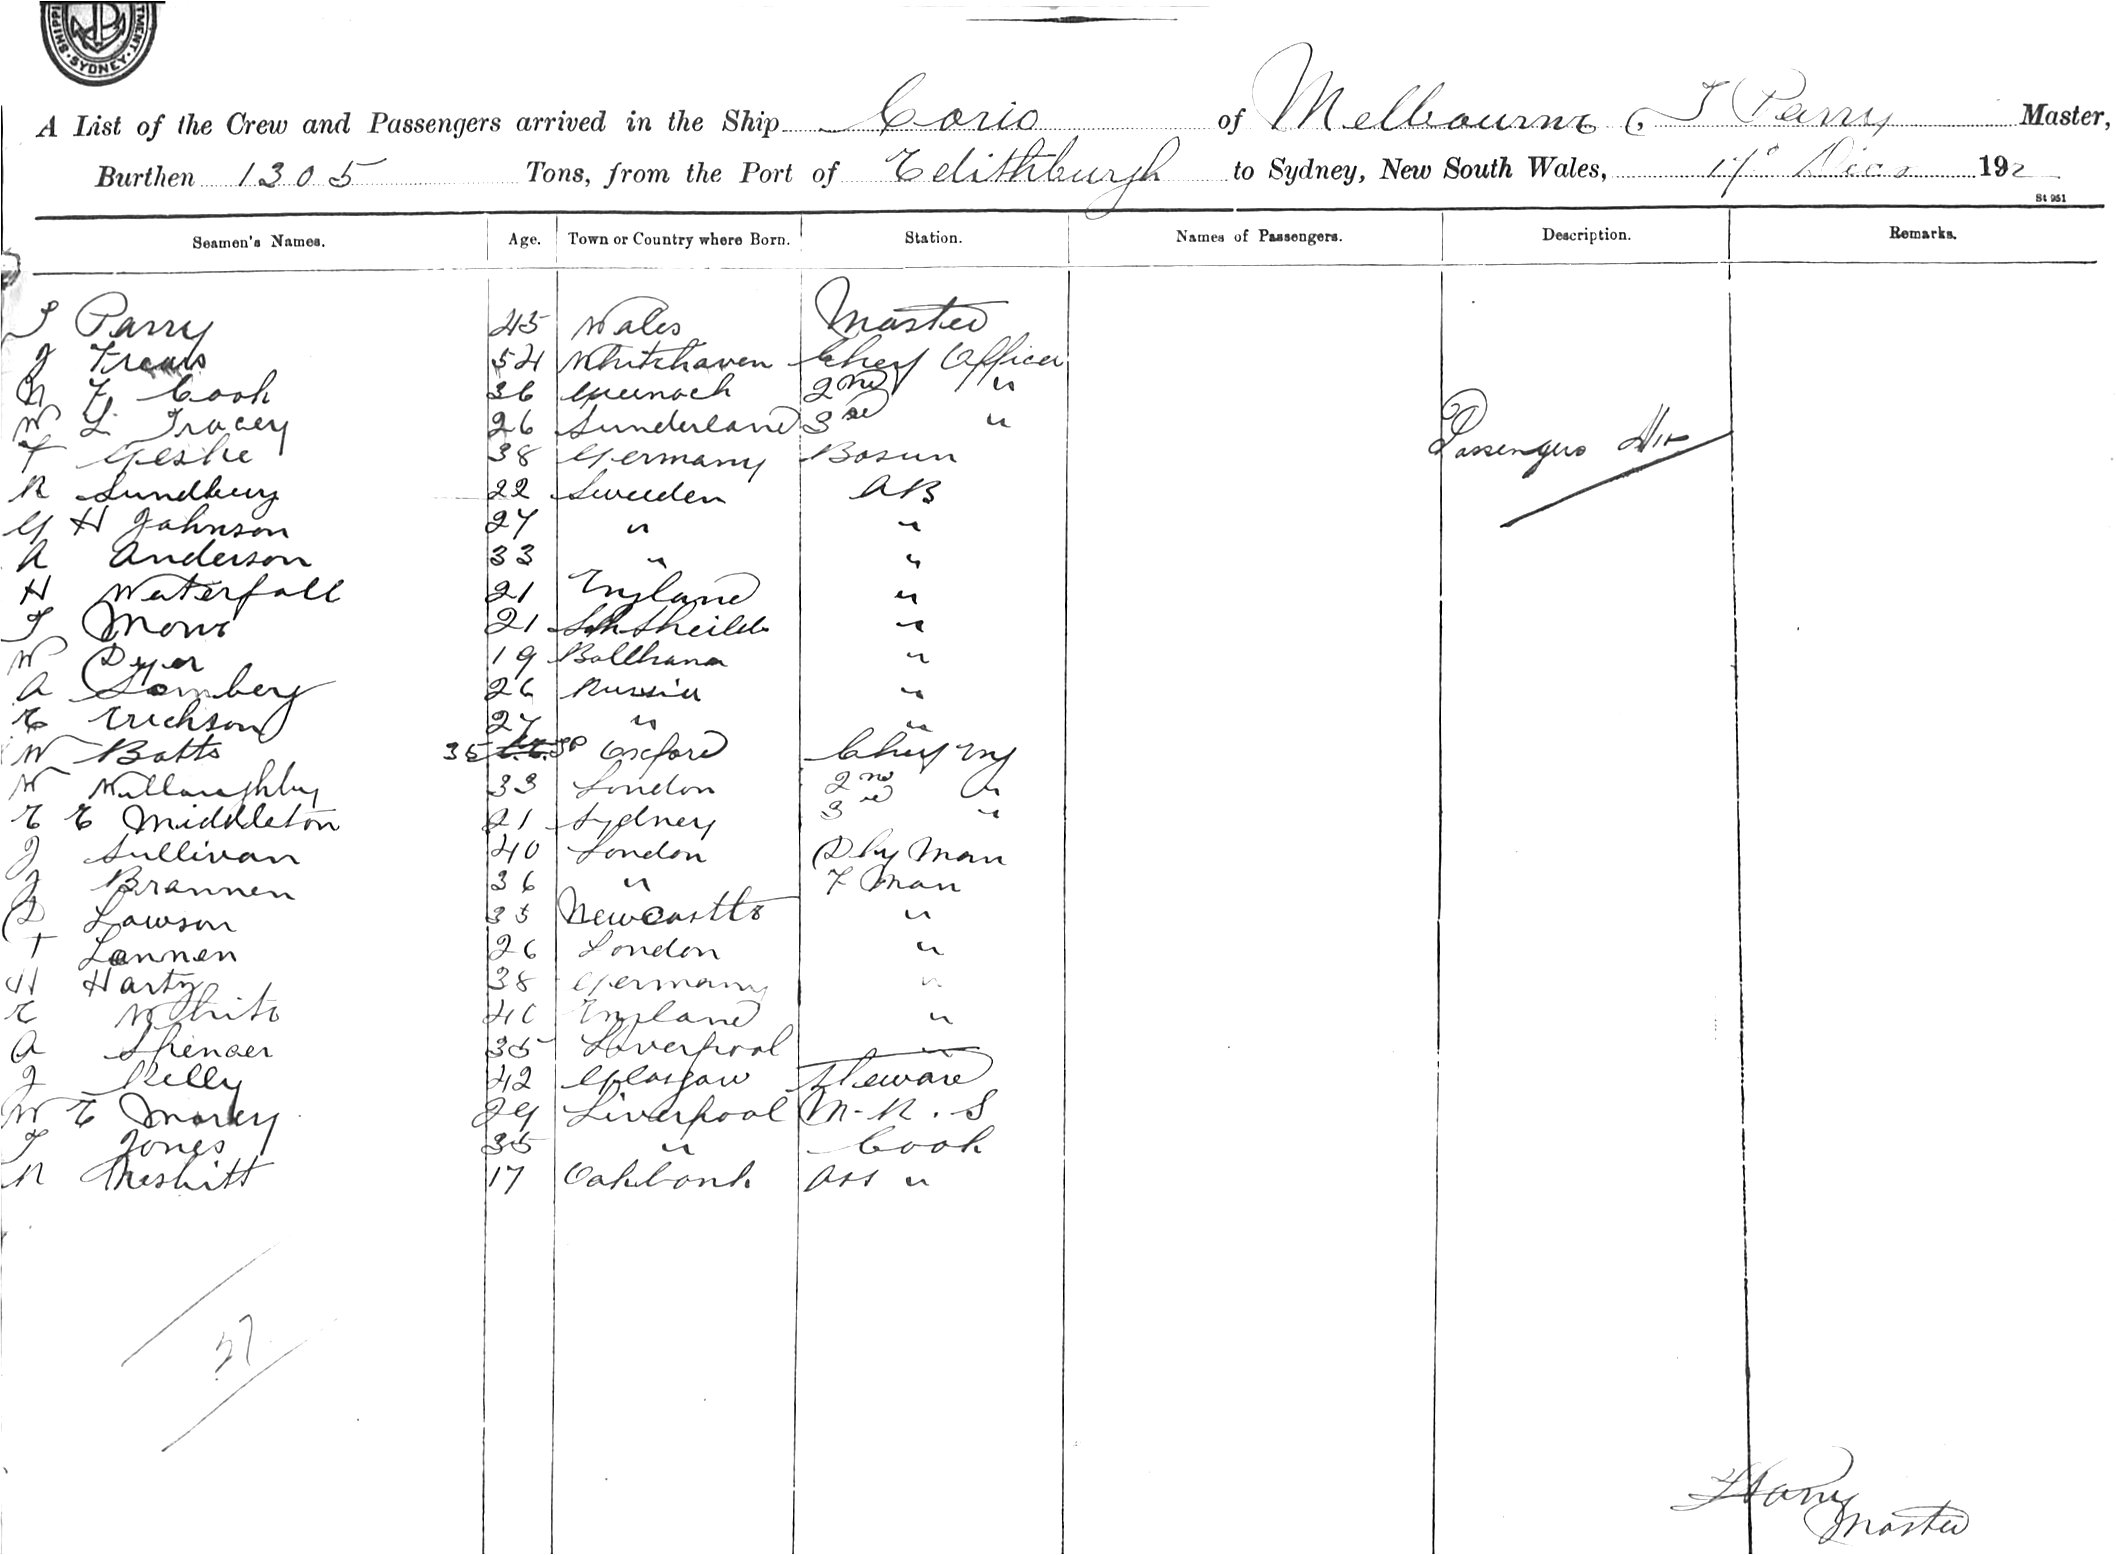 SHIPPI TMENT. SYDNEY.
A List of the Crew and Passengers arrived in the Ship Corio of Melbourne, T Parry Master,
Burthen 1305 Tons, from the Port of Edithburgh to Sydney, New South Wales, 17 192
St 951
Seamen's Names. Age. Town or Country where Born. Station. Names of Passengers. Description. Remarks.
T Parry 45 Wales Master
J 54 Whitehaven Chief Officer
N F Cook 36 Greenock 2nd "
W L Tracey 26 Sunderland 3rd "
Passengers Nil
F Geshe 38 Germany Bosun
R Sundberg 22 Sweeden AB
G H Johnson 27 " "
A Anderson 33 " "
H Waterfall 21 England "
T 21 Sth Sheilds "
W Dyer 19 "
A 26 Russia "
E Erichson 27 " "
W Batts 35 Oxford Chief Eng
W Willoughby 33 London 2nd "
E E Middleton 21 Sydney 3rd "
J Sullivan 40 London Dky Man
J Brannen 36 " F Man
D Lawson 35 Newcastle "
T Lannen 26 London "
H Hartz 38 Germany "
E White 40 England "
A Spencer 35 Liverpool "
J Kelly 42 Glasgow Steward
W E Morey 29 Liverpool M.R.S
T Jones 35 " Cook
R Nesbitt 17 Oakbank Ass "
T Parry
Master